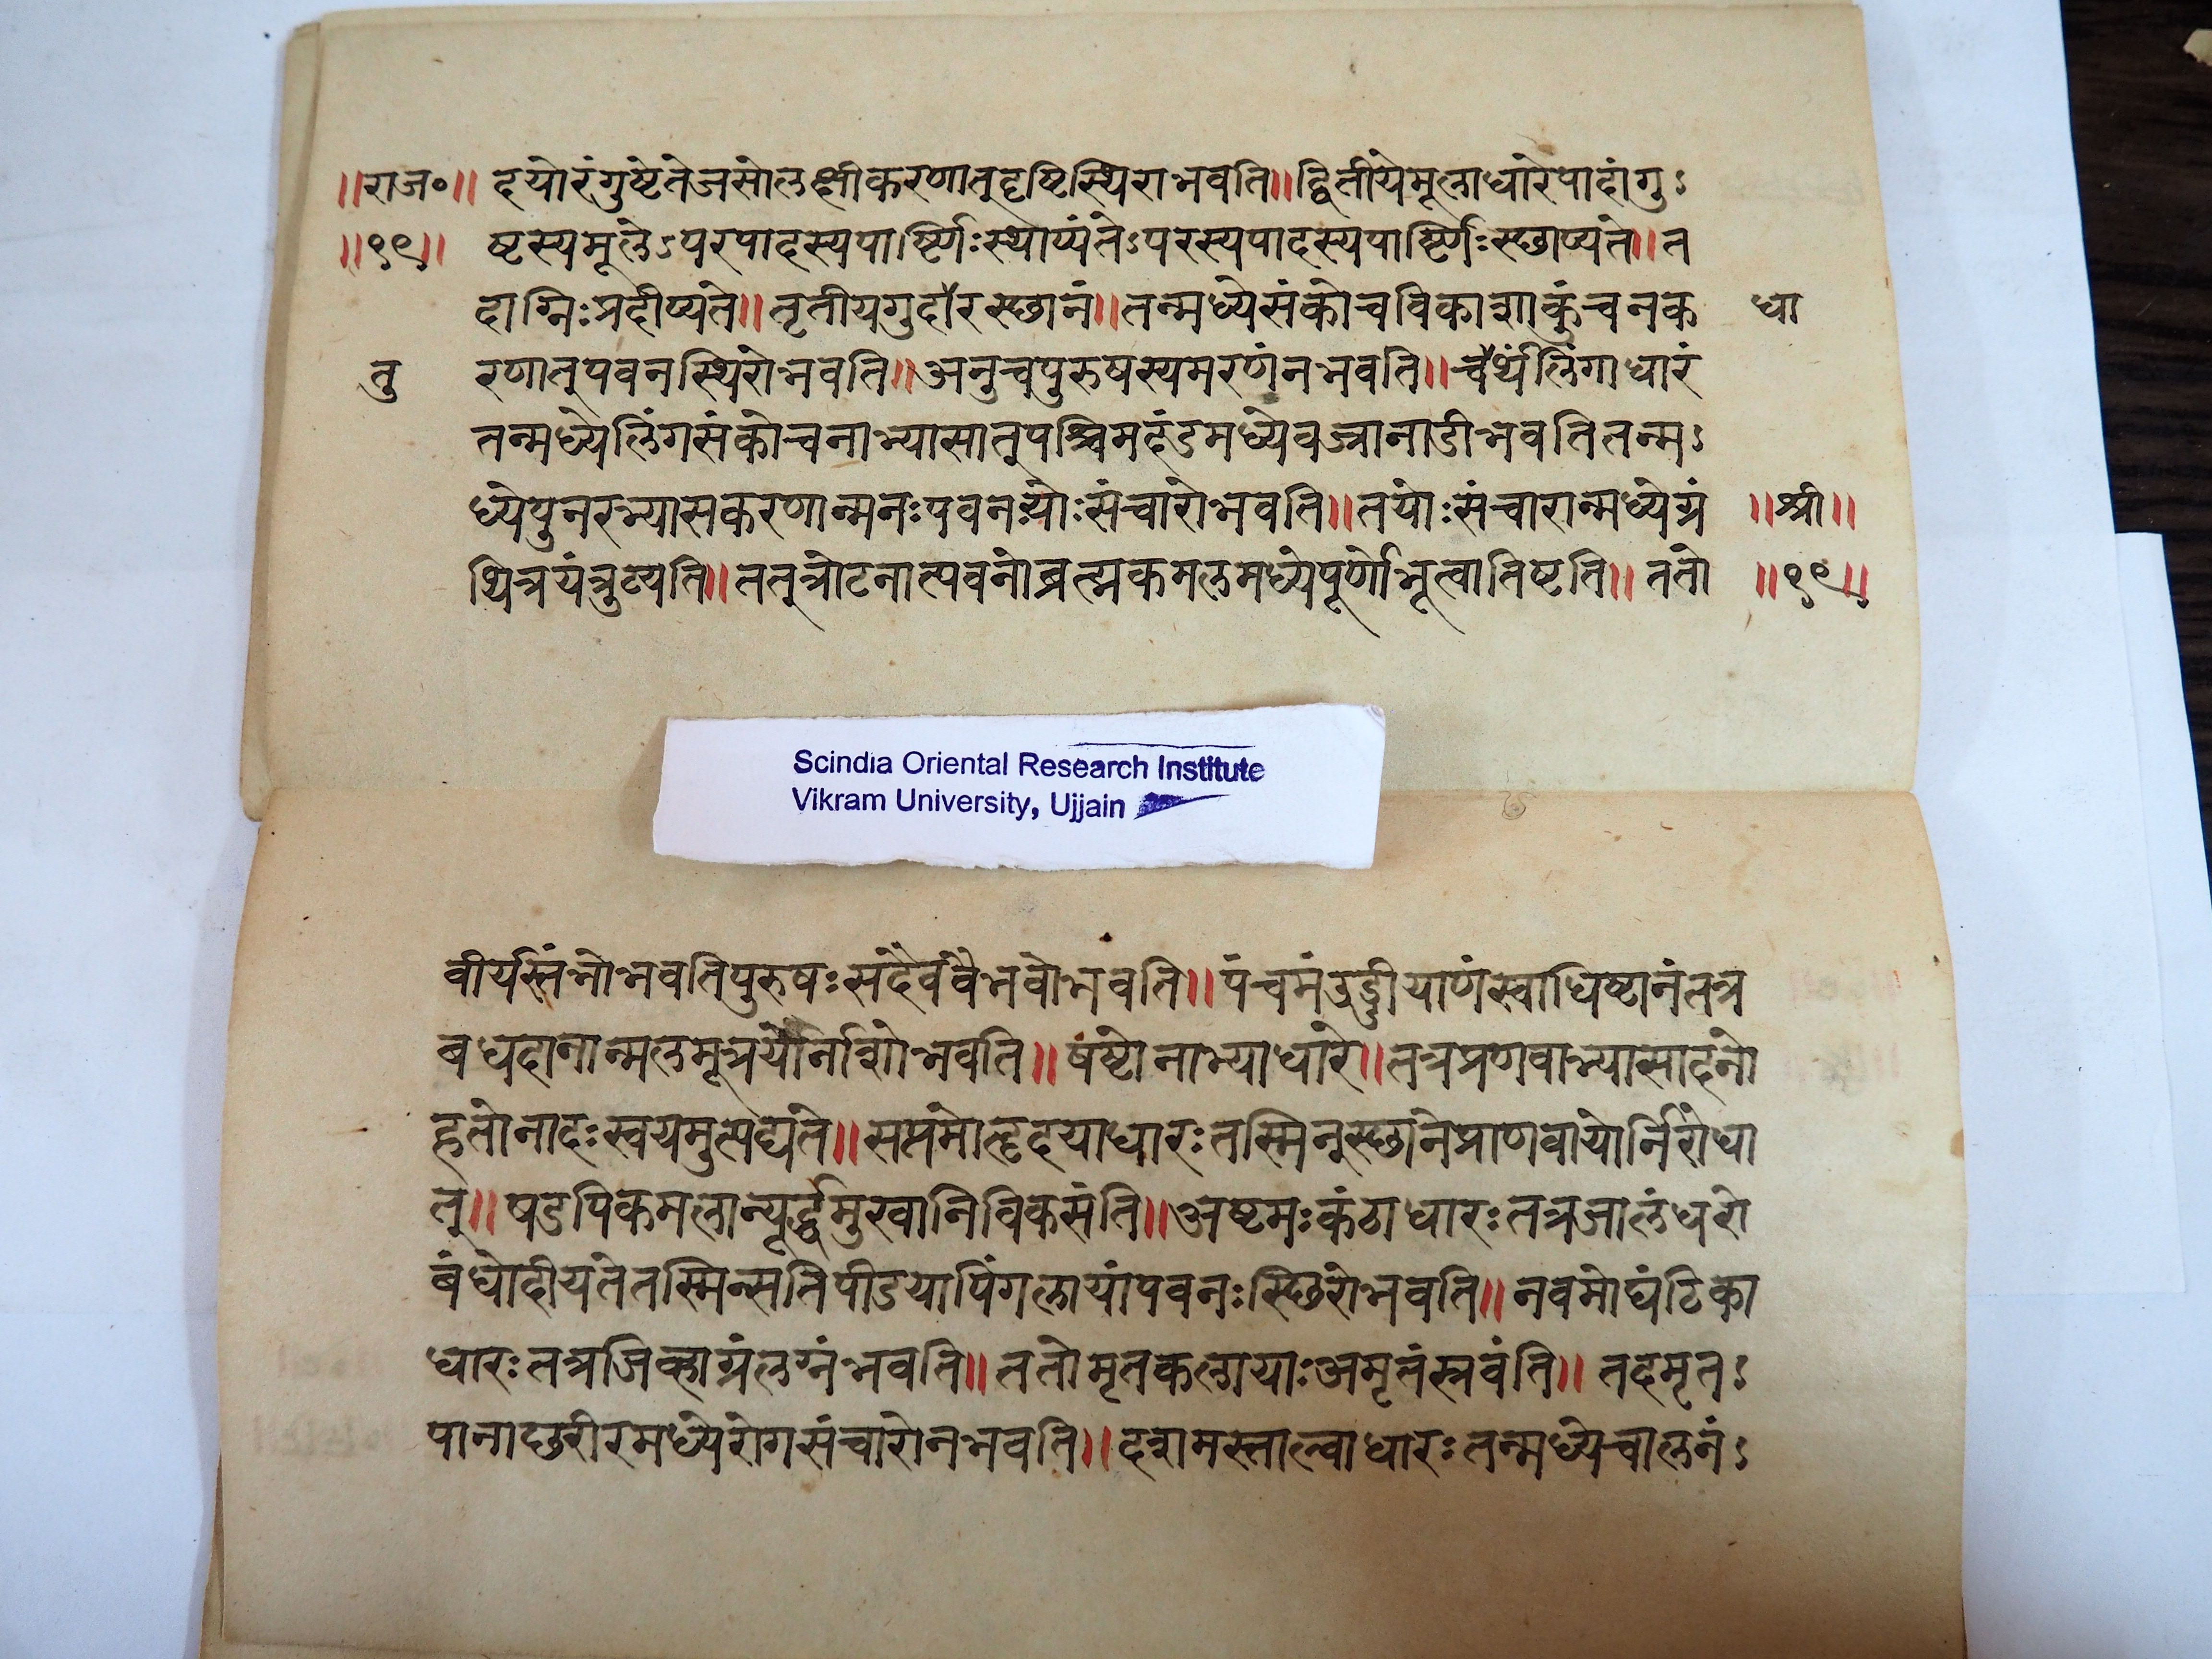 ॥राज०॥ दयोरंगुष्टेतेजसोलक्षीकरणात्दृष्टिस्थिराभवति॥द्वितीयेमूलाधारेपादांगुऽ
॥१९॥ ष्टस्यमूलेऽपरपादस्यपार्ष्णिःस्थाप्यंतेऽपरस्यपादस्यपार्ष्णिःस्छाप्यते॥त
दाग्निःप्रदीप्यते॥तृतीयगुदारस्छानं॥तन्मध्येसंकोचविकाशाकुंचनक धा
तु रणात्पवनस्थिरोभवति॥अनुचपुरुषस्यमरणंनभवति॥चैर्थंलिंगाधारं
तन्मध्येलिंगसंकोचनाभ्यासात्पश्चिमदंडमध्येवज्रानाडीभवतितन्मऽ
ध्येपुनरभ्यासकरणान्मनःपवनयोःसंचारोभवति॥तयोःसंचारान्मध्येग्रं ॥श्री॥
थित्रयंत्रुट्यति॥तत्त्रोटनात्पवनोब्रह्मकमलमध्येपूर्णोभूत्वातिष्टति॥ततो ॥१९॥
Scindia Oriental Research Institute
Vikram University, Ujjain
वीर्यस्तंभोभवतिपुरुषःसदैवंवैभवोभवति॥पंचमंउड्डीयाणंस्वाधिष्टानंतत्र
बधदानान्मलमूत्रयोर्नाशोभवति॥षष्टोनाभ्याधारे॥तत्रप्रणवाभ्यासादनो
हतोनादःस्वयमुत्पद्यते॥सप्तमोहृदयाधारःतस्मिन्स्छानेप्राणवायोर्निरोधा
त्॥षडपिकमलान्यूर्द्ध्वमुखानिविकसंति॥अष्टमःकंठाधारःतत्रजालंधरो
बंधोदीयतेतस्मिन्सतिपीडयापिंगलायांपवनःस्छिरोभवति॥नवमोघंटिका
धारःतत्रजिव्हाग्रंलग्नंभवति॥ततोमृतकलायाःअमृतंस्रवंति॥तदमृतऽ
पानाछरीरमध्येरोगसंचारोनभवति॥दशमस्ताल्वाधारःतन्मध्येचालनंऽ